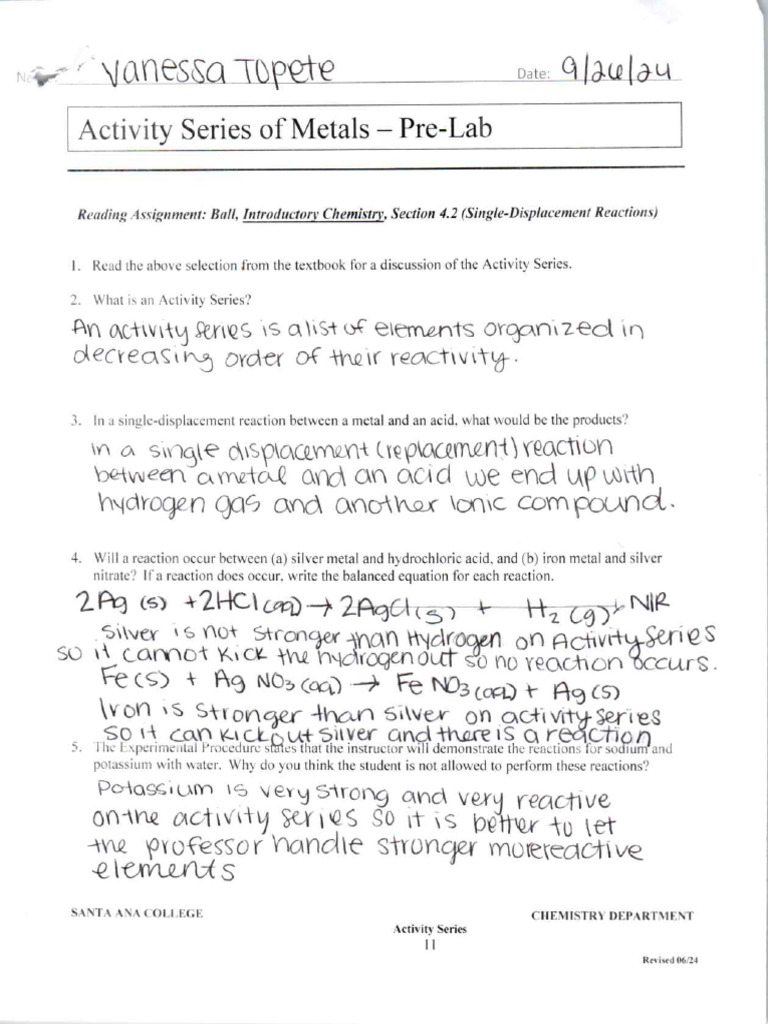 Vanessa Topete Date: 9/26/24
Activity Series of Metals – Pre-Lab
Reading Assignment: Ball, Introductory Chemistry, Section 4.2 (Single-Displacement Reactions)
1. Read the above selection from the textbook for a discussion of the Activity Series.
2. What is an Activity Series?
An activity series is a list of elements organized in
decreasing order of their reactivity.
3. In a single-displacement reaction between a metal and an acid, what would be the products?
in a single displacement (replacement) reaction
between a metal and an acid we end up with
hydrogen gas and another ionic compound.
4. Will a reaction occur between (a) silver metal and hydrochloric acid, and (b) iron metal and silver
nitrate? If a reaction does occur, write the balanced equation for each reaction.
2Ag (s) + 2HCl (aq) → 2AgCl (s) + H₂ (g) NIR
Silver is not stronger than Hydrogen on Activity Series
so it cannot kick the hydrogen out so no reaction occurs.
Fe(s) + Ag NO₃ (aq) → Fe NO₃ (aq) + Ag (s)
Iron is stronger than silver on activity series
so it can kick out silver and there is a reaction
5. The Experimental Procedure states that the instructor will demonstrate the reactions for sodium and
potassium with water. Why do you think the student is not allowed to perform these reactions?
Potassium is very strong and very reactive
on the activity series so it is better to let
the professor handle stronger more reactive
elements
SANTA ANA COLLEGE CHEMISTRY DEPARTMENT
Activity Series
11
Revised 06/24